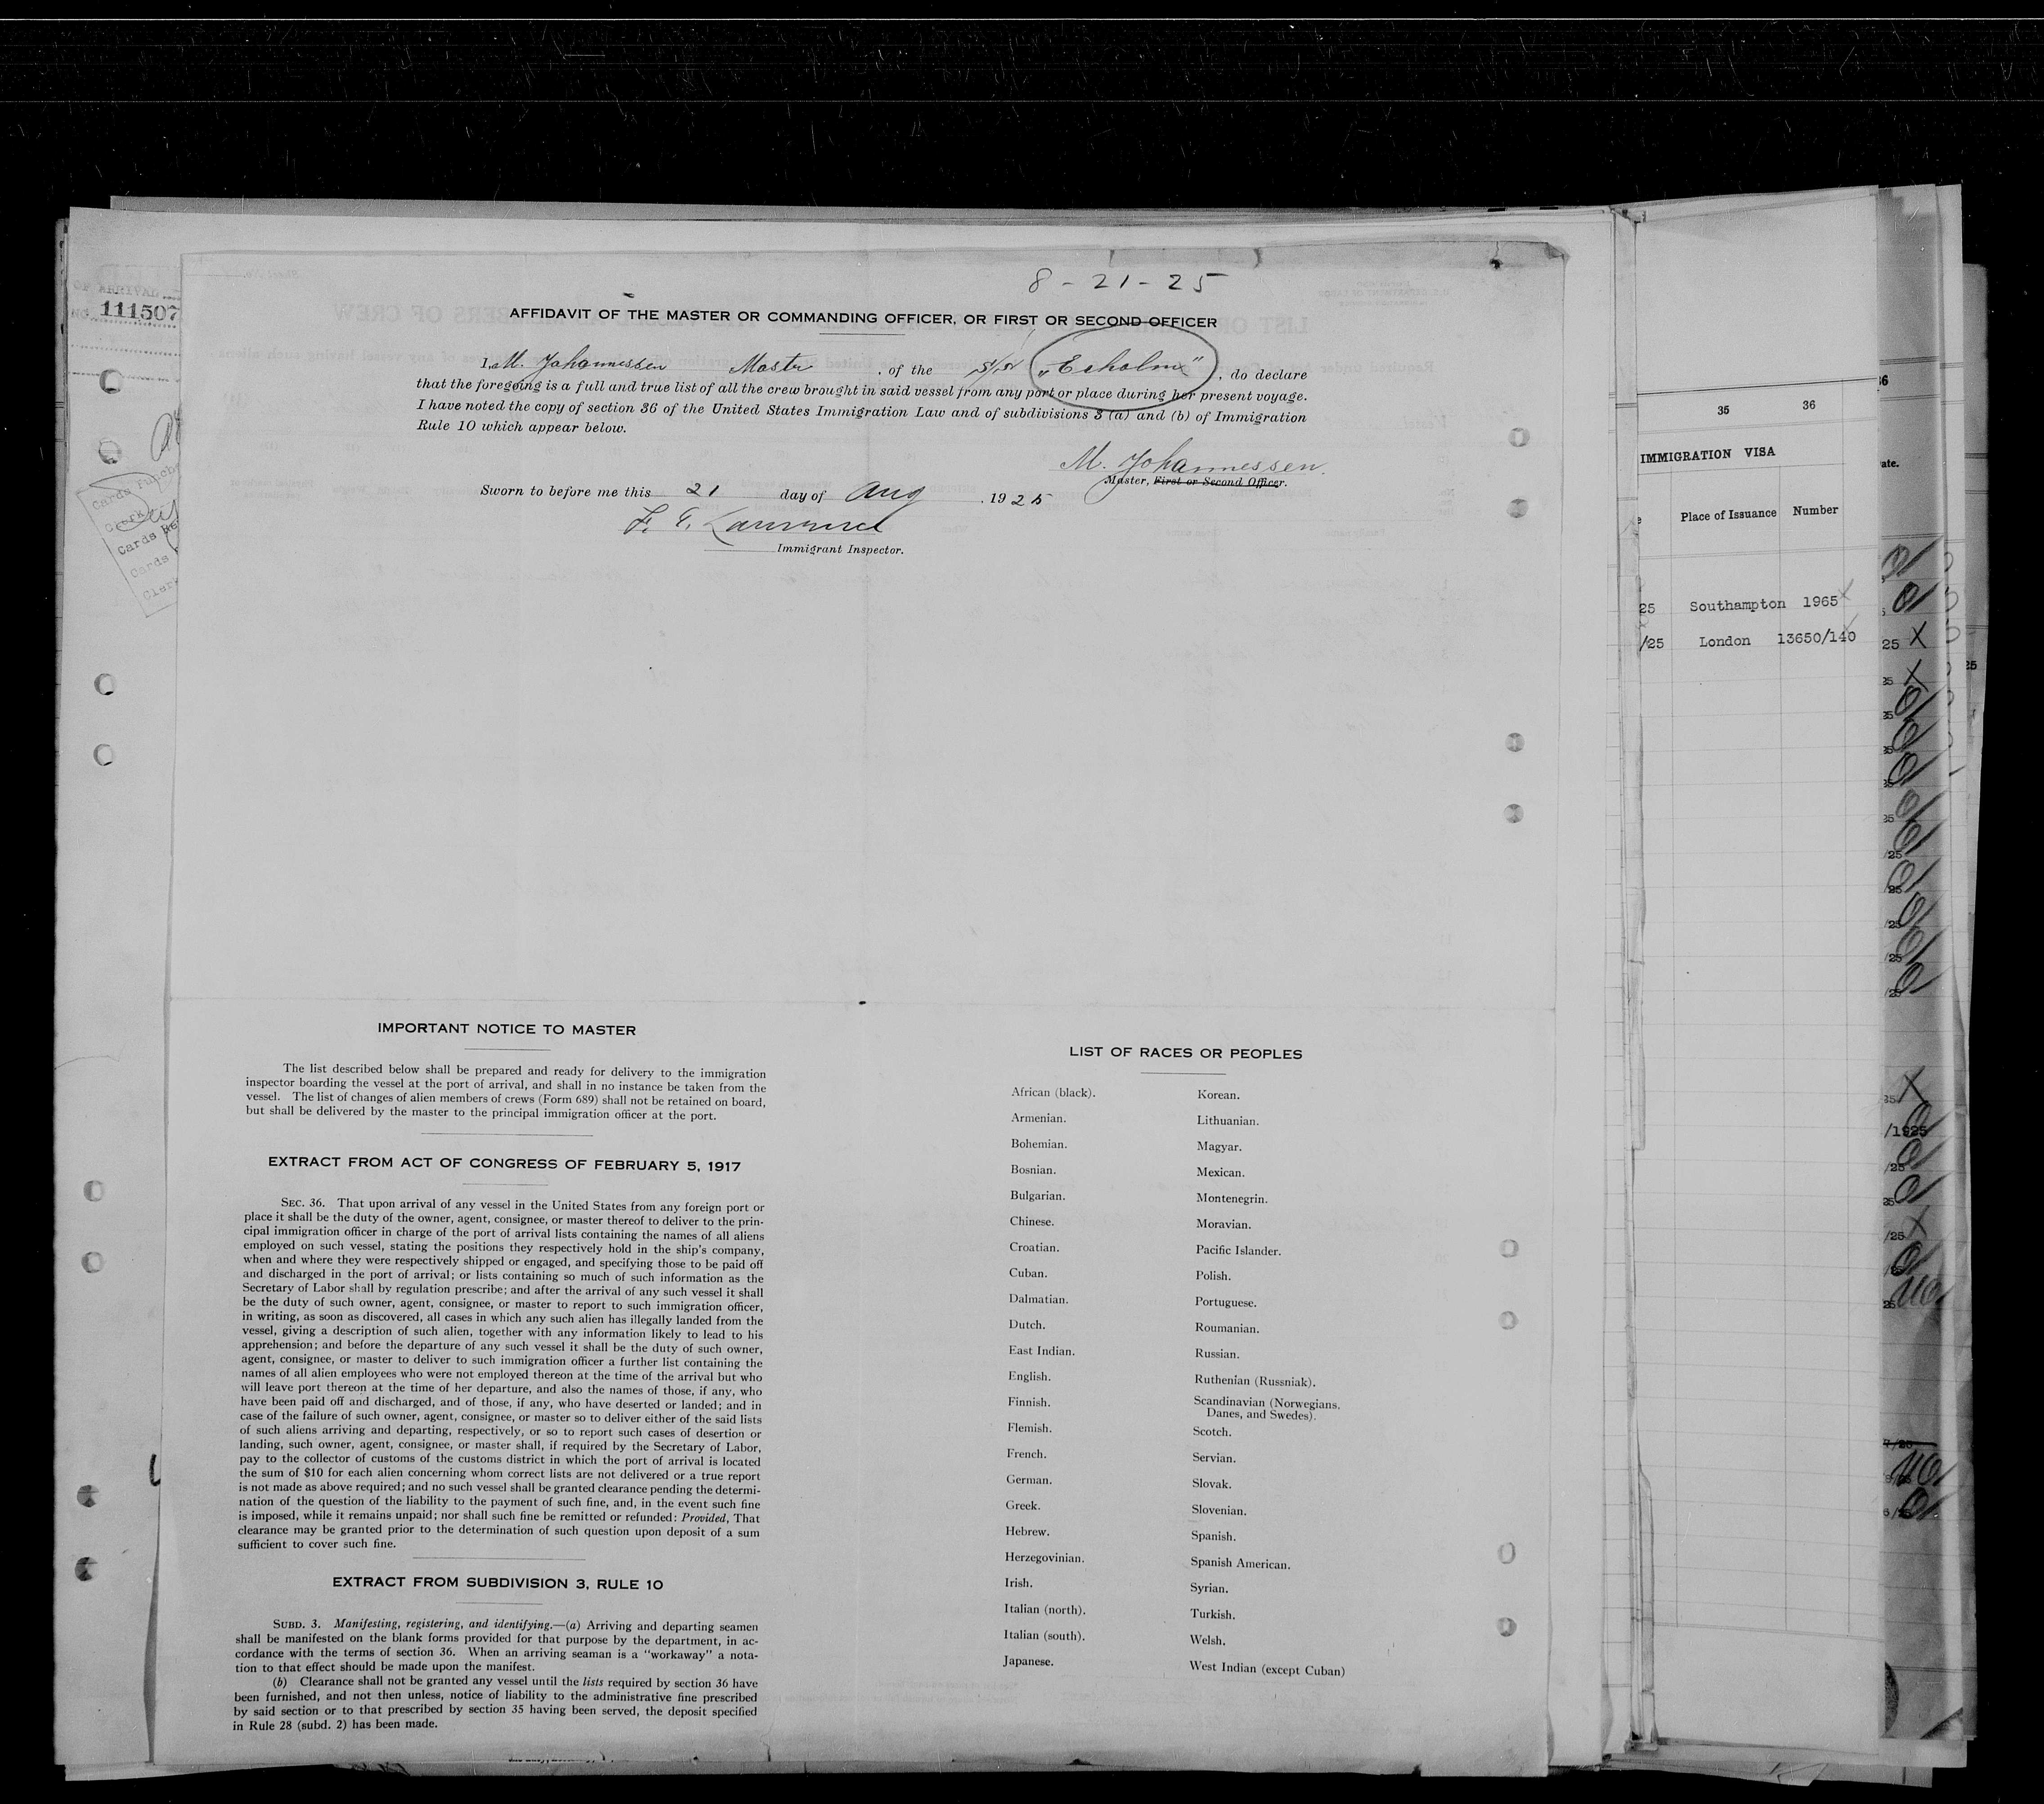 8-21-25
AFFIDAVIT OF THE MASTER OR COMMANDING OFFICER, OR FIRST OR SECOND OFFICER
I, M. Johannessen Master, of the S/S „Ekholm", do declare
that the foregoing is a full and true list of all the crew brought in said vessel from any port or place during her present voyage.
I have noted the copy of section 36 of the United States Immigration Law and of subdivisions 3 (a) and (b) of Immigration
Rule 10 which appear below.
M. Johannessen.
Master, First or Second Officer.
Sworn to before me this 21 day of Aug, 1925
F. E. Lawrence
Immigrant Inspector.
OF ARRIVAL
NO. 111507
Cards Punche
Clerk
Cards
Cards
Clerk
35 36
IMMIGRATION VISA
Place of Issuance Number
25 Southampton 1965
/25 London 13650/140
IMPORTANT NOTICE TO MASTER
The list described below shall be prepared and ready for delivery to the immigration
inspector boarding the vessel at the port of arrival, and shall in no instance be taken from the
vessel. The list of changes of alien members of crews (Form 689) shall not be retained on board,
but shall be delivered by the master to the principal immigration officer at the port.
EXTRACT FROM ACT OF CONGRESS OF FEBRUARY 5, 1917
SEC. 36. That upon arrival of any vessel in the United States from any foreign port or
place it shall be the duty of the owner, agent, consignee, or master thereof to deliver to the prin-
cipal immigration officer in charge of the port of arrival lists containing the names of all aliens
employed on such vessel, stating the positions they respectively hold in the ship's company,
when and where they were respectively shipped or engaged, and specifying those to be paid off
and discharged in the port of arrival; or lists containing so much of such information as the
Secretary of Labor shall by regulation prescribe; and after the arrival of any such vessel it shall
be the duty of such owner, agent, consignee, or master to report to such immigration officer,
in writing, as soon as discovered, all cases in which any such alien has illegally landed from the
vessel, giving a description of such alien, together with any information likely to lead to his
apprehension; and before the departure of any such vessel it shall be the duty of such owner,
agent, consignee, or master to deliver to such immigration officer a further list containing the
names of all alien employees who were not employed thereon at the time of the arrival but who
will leave port thereon at the time of her departure, and also the names of those, if any, who
have been paid off and discharged, and of those, if any, who have deserted or landed; and in
case of the failure of such owner, agent, consignee, or master so to deliver either of the said lists
of such aliens arriving and departing, respectively, or so to report such cases of desertion or
landing, such owner, agent, consignee, or master shall, if required by the Secretary of Labor,
pay to the collector of customs of the customs district in which the port of arrival is located
the sum of $10 for each alien concerning whom correct lists are not delivered or a true report
is not made as above required; and no such vessel shall be granted clearance pending the determi-
nation of the question of the liability to the payment of such fine, and, in the event such fine
is imposed, while it remains unpaid; nor shall such fine be remitted or refunded: Provided, That
clearance may be granted prior to the determination of such question upon deposit of a sum
sufficient to cover such fine.
EXTRACT FROM SUBDIVISION 3, RULE 10
SUBD. 3. Manifesting, registering, and identifying.—(a) Arriving and departing seamen
shall be manifested on the blank forms provided for that purpose by the department, in ac-
cordance with the terms of section 36. When an arriving seaman is a "workaway" a nota-
tion to that effect should be made upon the manifest.
(b) Clearance shall not be granted any vessel until the lists required by section 36 have
been furnished, and not then unless, notice of liability to the administrative fine prescribed
by said section or to that prescribed by section 35 having been served, the deposit specified
in Rule 28 (subd. 2) has been made.
LIST OF RACES OR PEOPLES
African (black).
Armenian.
Bohemian.
Bosnian.
Bulgarian.
Chinese.
Croatian.
Cuban.
Dalmatian.
Dutch.
East Indian.
English.
Finnish.
Flemish.
French.
German.
Greek.
Hebrew.
Herzegovinian.
Irish.
Italian (north).
Italian (south).
Japanese.
Korean.
Lithuanian.
Magyar.
Mexican.
Montenegrin.
Moravian.
Pacific Islander.
Polish.
Portuguese.
Roumanian.
Russian.
Ruthenian (Russniak).
Scandinavian (Norwegians,
Danes, and Swedes).
Scotch.
Servian.
Slovak.
Slovenian.
Spanish.
Spanish American.
Syrian.
Turkish.
Welsh.
West Indian (except Cuban)